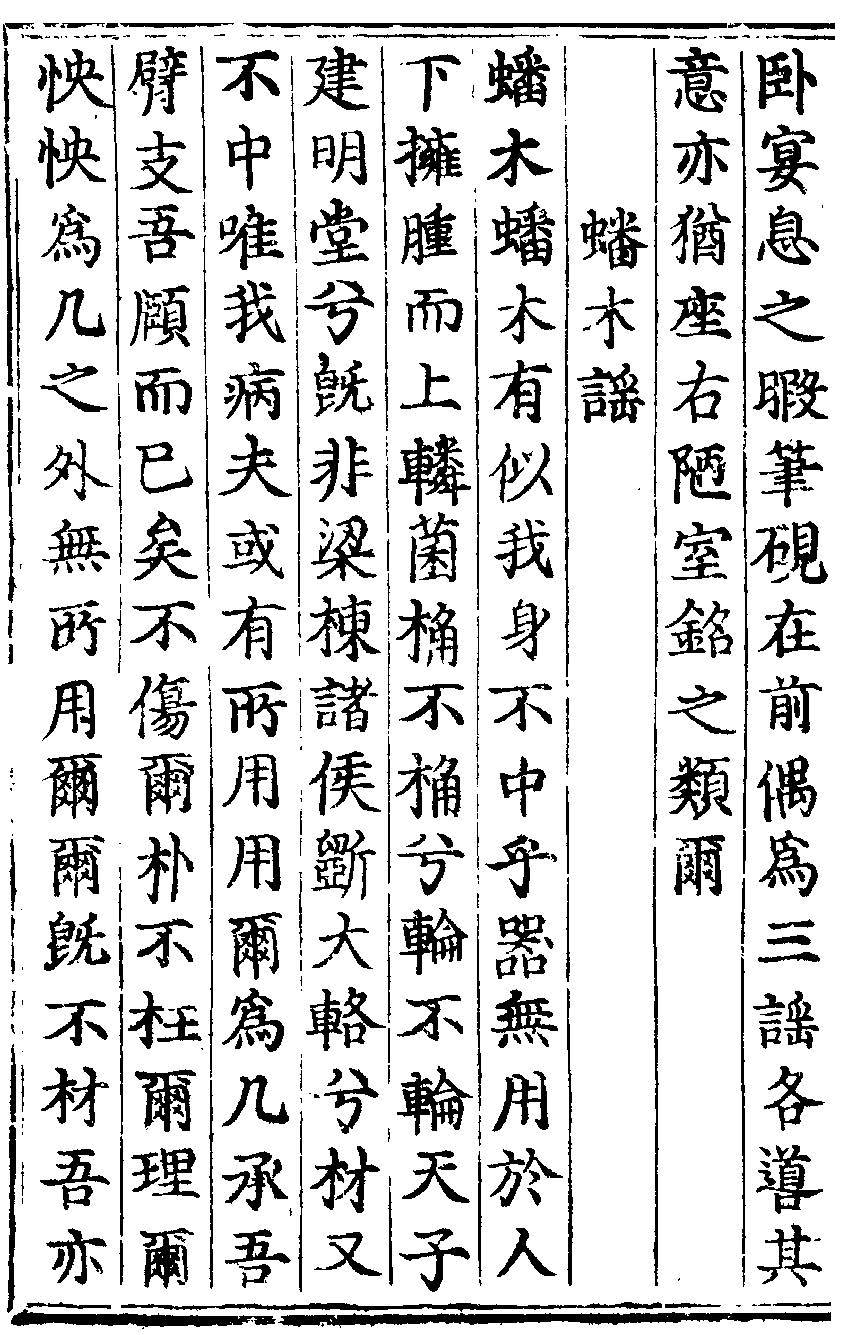 卧宴息之暇筆硯在前偶爲三謡各導其
意亦猶座右陋室銘之類爾
蟠木謡
蟠木蟠木有似我身不中乎器無用於人
下擁腫而上轔菌桷不桷兮輪不輪天子
建明堂兮旣非梁棟諸侯斵大輅兮材又
不中唯我病夫或有所用用爾爲几承吾
臂支吾頤而已矣不傷爾朴不枉爾理爾
怏怏爲几之外無所用爾爾旣不材吾亦